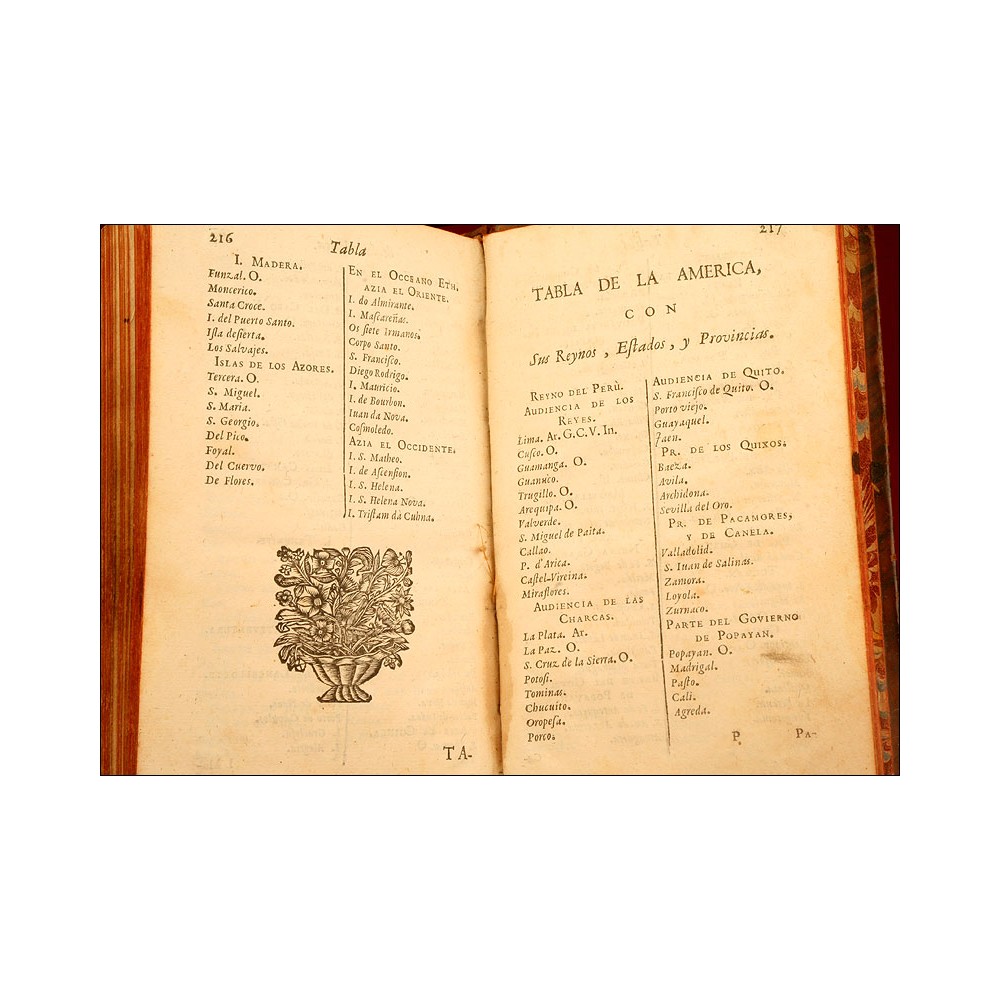 216
Tabla
I. MADERA.
Funzal. O.
Moncerico.
Santa Croce.
I. del Puerto Santo.
Iſla deſierta.
Los Salvajes.
ISLAS DE LOS AZORES.
Tercera. O.
S. Miguel.
S. Maria.
S. Georgio.
Del Pico.
Foyal.
Del Cuervo.
De Flores.
EN EL OCCEANO ETH.
AZIA EL ORIENTE.
I. do Almirante.
I. Maſcareñas.
Os ſiete Irmanos.
Corpo Santo.
S. Franciſco.
Diego Rodrigo.
I. Mauricio.
I. de Bourbon.
Iuan da Nova.
Coſmoledo.
AZIA EL OCCIDENTE.
I. S. Matheo.
I. de Aſcenſion.
I. S. Helena.
I. S. Helena Nova.
I. Triſtam dà Cuhna.
TA-
217
TABLA DE LA AMERICA,
CON
Sus Reynos, Eſtados, y Provincias.
REYNO DEL PERÙ.
AUDIENCIA DE LOS
REYES.
Lima. Ar. G.C.V. In.
Cuſco. O.
Guamanga. O.
Guanuco.
Trugillo. O.
Arequipa. O.
Valverde.
S. Miguel de Paita.
Callao.
P. d'Arica.
Caſtel-Vireina.
Miraflores.
AUDIENCIA DE LAS
CHARCAS.
La Plata. Ar.
La Paz. O.
S. Cruz de la Sierra. O.
Potoſi.
Tominas.
Chucuito.
Oropeſa.
Porco.
AUDIENCIA DE QUITO.
S. Franciſco de Quito. O.
Porto viejo.
Guayaquel.
Jaen.
PR. DE LOS QUIXOS.
Baeza.
Avila.
Archidona.
Sevilla del Oro.
PR. DE PACAMORES,
Y DE CANELA.
Valladolid.
S. Iuan de Salinas.
Zamora.
Loyola.
Zurnaco.
PARTE DEL GOVIERNO
DE POPAYAN.
Popayan. O.
Madrigal.
Paſto.
Cali.
Agreda.
P.
PA-